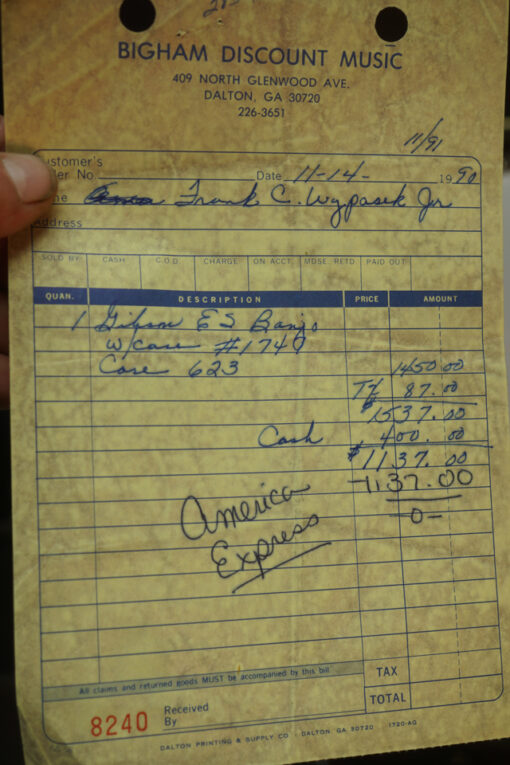 BIGHAM DISCOUNT MUSIC
409 NORTH GLENWOOD AVE.
DALTON, GA 30720
226-3651
11/91
ustomer's
er No. Date 11-14- 19 90
me Frank C. Wypasek Jr
ddress
SOLD BY CASH C.O.D. CHARGE ON ACCT. MDSE. RETD. PAID OUT
QUAN. DESCRIPTION PRICE AMOUNT
1 Gibson ES Banjo
w/case #1749
Case 623 1450.00
TX 87.00
$1537.00
Cash 400.00
$1137.00
-1137.00
America -0-
Express
All claims and returned goods MUST be accompanied by this bill. TAX
8240 Received By TOTAL
DALTON PRINTING & SUPPLY CO. DALTON, GA 30720 1720-AG